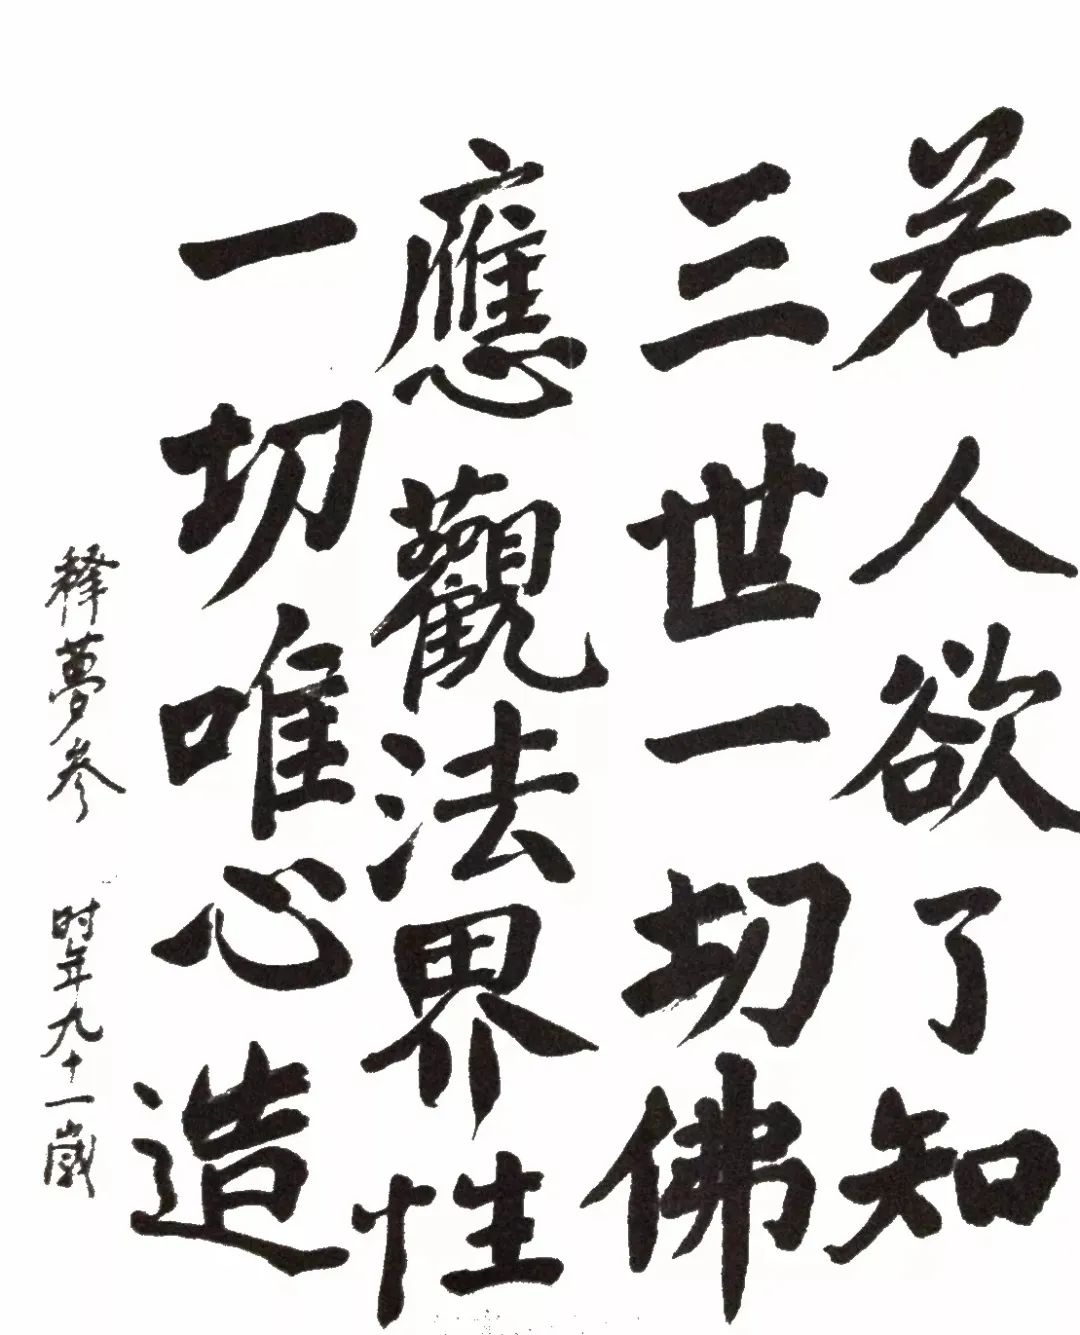 若人欲了知
三世一切佛
應觀法界性
一切唯心造
释夢参 时年九十一歲